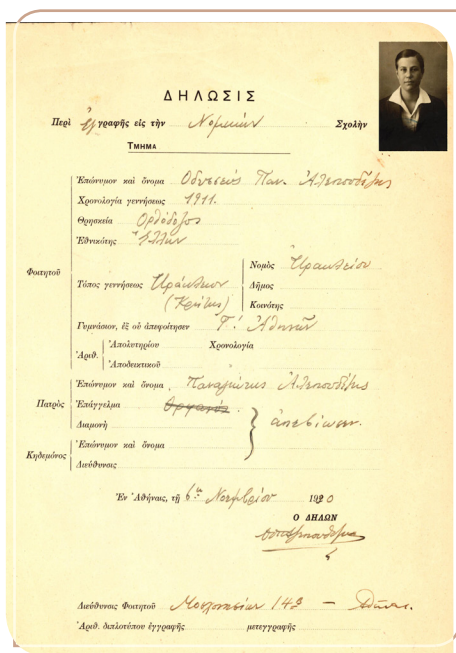 ΔΗΛΩΣΙΣ
Περὶ ἐγγραφῆς εἰς τὴν Νομικὴν Σχολὴν
ΤΜΗΜΑ
Ἐπώνυμον καὶ ὄνομα Ὀδυσσεὺς Παν. Ἀλεπουδέλης
Χρονολογία γεννήσεως 1911.
Θρησκεία Ὀρθόδοξος
Ἐθνικότης Ἕλλην
Φοιτητοῦ
Τόπος γεννήσεως Ἡράκλειον
(Κρήτης)
Νομὸς Ἡρακλείου
Δῆμος
Κοινότης
Γυμνάσιον, ἐξ οὗ ἀπεφοίτησεν Γ! Ἀθηνῶν
Ἀριθ. Ἀπολυτηρίου Χρονολογία
Ἀποδεικτικοῦ
Πατρὸς
Ἐπώνυμον καὶ ὄνομα Παναγιώτης Ἀλεπουδέλης
Ἐπάγγελμα
Διαμονὴ ἀπεβίωσεν.
Κηδεμόνος
Ἐπώνυμον καὶ ὄνομα
Διεύθυνσις
Ἐν Ἀθήναις, τῇ 6ῃ Νοεμβρίου 1930
Ο ΔΗΛΩΝ
Διεύθυνσις Φοιτητοῦ Μοσχονησίων 148 — Ἀθήνας.
Ἀριθ. διπλοτύπου ἐγγραφῆς μετεγγραφῆς